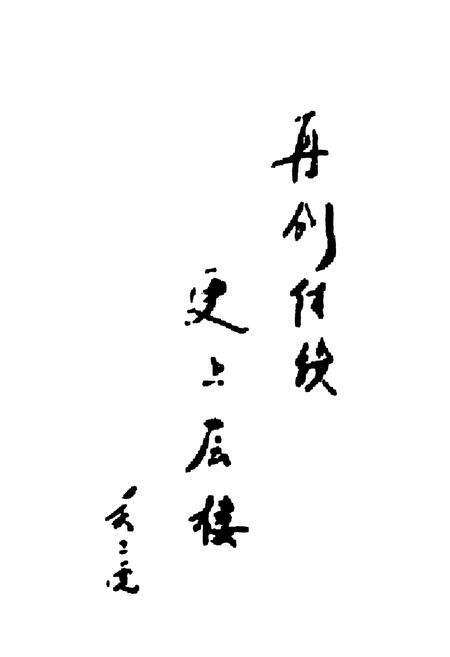 再创佳绩
更上层楼